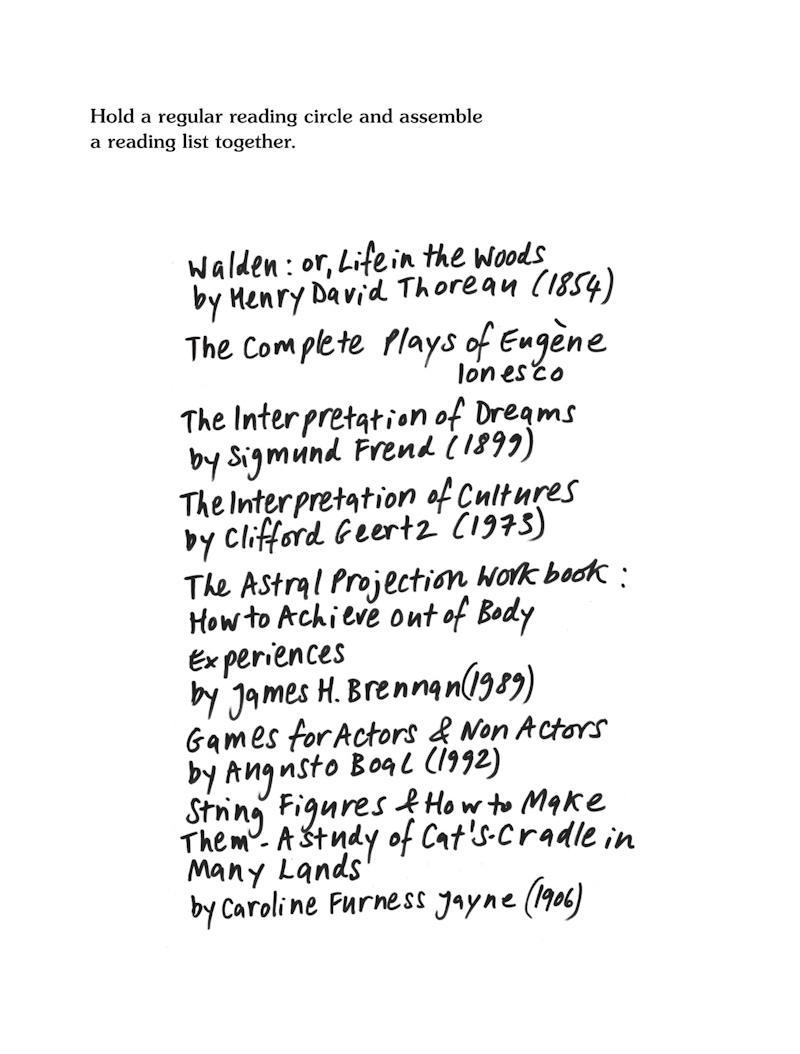 Hold a regular reading circle and assemble
a reading list together.
Walden: or, Life in the Woods
by Henry David Thoreau (1854)
The Complete Plays of Eugène
Ionesco
The Interpretation of Dreams
by Sigmund Freud (1899)
The Interpretation of Cultures
by Clifford Geertz (1973)
The Astral Projection Workbook:
How to Achieve out of Body
Experiences
by James H. Brennan (1989)
Games for Actors & Non Actors
by Augusto Boal (1992)
String Figures & How to Make
Them - A study of Cat's-Cradle in
Many Lands
by Caroline Furness Jayne (1906)